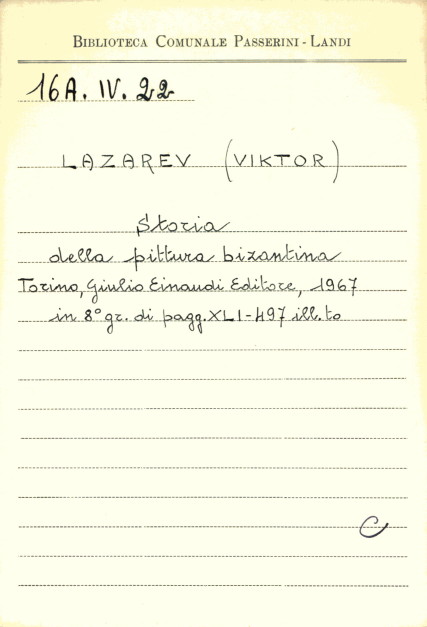 BIBLIOTECA COMUNALE PASSERINI-LANDI
16A. IV. 22
LAZAREV (VIKTOR)
Storia
della pittura bizantina
Torino, Giulio Einaudi Editore, 1967
in 8° gr. di pagg. XLI-497 ill.to
C